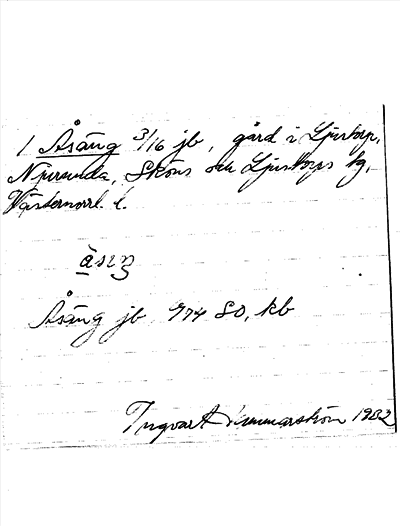 1 Åsäng 3/16 jb, gård i Ljustorp,
Njurunda, Sköns och Ljustorps tg,
Västernorrl. l.
Åsäng jb 974 SO, kb
Ingvar 1932